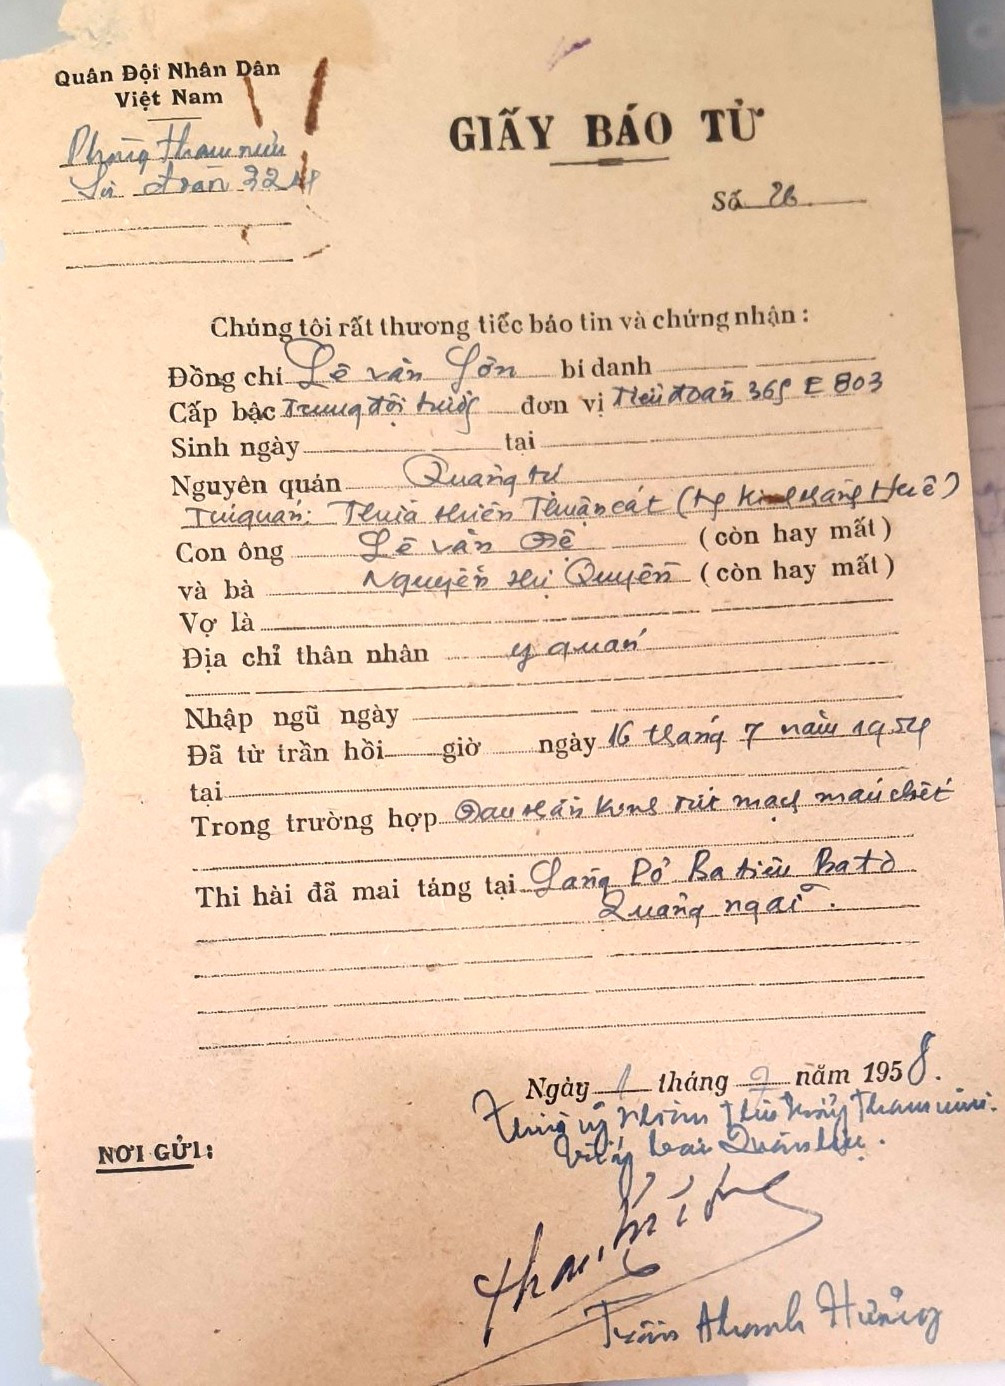 Quân Đội Nhân Dân
Việt Nam
Phòng tham mưu
Sư đoàn 324
GIẤY BÁO TỬ
Số 26
Chúng tôi rất thương tiếc báo tin và chứng nhận :
Đồng chí Lê văn Sơn bí danh
Cấp bậc Trung đội trưởng đơn vị Tiểu đoàn 365 E 803
Sinh ngày tại
Nguyên quán Quảng tư
Trú quán: Thừa thiên Thuận cát ( Huế )
Con ông Lê văn Đệ ( còn hay mất )
và bà Nguyễn thị Quyền ( còn hay mất )
Vợ là
Địa chỉ thân nhân y quán
Nhập ngũ ngày
Đã từ trần hồi giờ ngày 16 tháng 7 năm 1954
tại
Trong trường hợp Đau thần kinh đứt mạch máu chết
Thi hài đã mai táng tại Làng Ba tiêu Ba tơ
Quảng ngãi .
Ngày 1 tháng 7 năm 1958.
tham mưu.
NƠI GỬI :
Trần Thanh